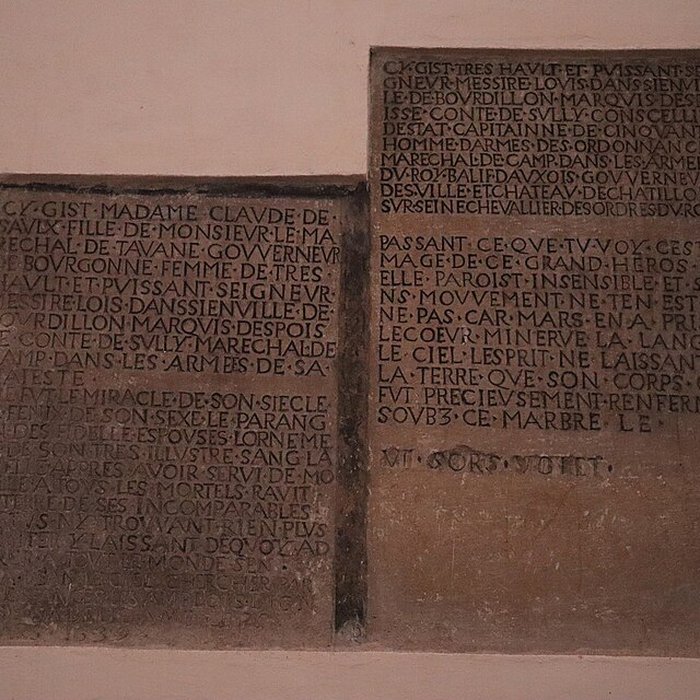 CY·GIST·MADAME CLAVDE·DE·
SAVLX·FILLE·DE·MONSIEVR·LE·MA
RECHAL·DE·TAVANE·GOVVERNEVR
DE BOVRGONNE·FEMME·DE·TRES
HAVLT·ET·PVISSANT·SEIGNEVR·
MESSIRE·LOIS·DANSSIENVILLE·DE·
BOVRDILLON·MARQVIS·DESPOIS
E·CONTE·DE·SVLLY·MARECHAL·DE
CAMP·DANS·LES·ARMEES·DE·SA·
MAIESTE
FVT·LE·MIRACLE·DE·SON·SIECLE
FENIX·DE·SON·SEXE·LE·PARANG
DES·FIDELLE·ESPOVSES·LORNEME
DE·SON·TRES·ILLVSTRE·SANG·LA
APPRES·AVOIR·SERVI·DE·MO
A·TOVS·LES·MORTELS·RAVIT
DE·SES·INCOMPARABLES
NY·TROVVANT·RIEN·PLVS
Y·LAISSANT·DEQVOY·AD
TOVT·LE·MONDE·SEN
LE·CIEL·CHERCHER
CY·GIST·TRES HAVLT·ET·PVISSANT·SE
GNEVR·MESSIRE·LOVIS·DANSSIENVI
LE·DE·BOVRDILLON·MARQVIS·DES
ISSE·CONTE·DE·SVLLY·CONSCELL
DESTAT·CAPITAINNE·DE·CINQVAN
HOMME·DARMES·DES·ORDONNANC
MARECHAL·DE·CAMP·DANS·LES·ARME
DV·ROY·BALIF·DAVXOIS·GOVVERNEV
DES·VILLE·ET·CHATEAV·DE·CHATILLO
SVR·SEINE·CHEVALLIER·DES·ORDRES·DV·R
PASSANT·CE·QVE·TV·VOY·CES
MAGE·DE·CE·GRAND·HEROS
ELLE·PAROIST·INSENSIBLE·ET
NS·MOVVEMENT·NE·TEN·EST
NE·PAS·CAR·MARS·EN·A·PRI
LE·COEVR·MINERVE·LA·LANG
LE·CIEL·LESPRIT·NE·LAISSAN
LA·TERRE·QVE·SON·CORPS·
FVT·PRECIEVSEMENT·RENFERM
SOVBZ·CE·MARBRE·LE·